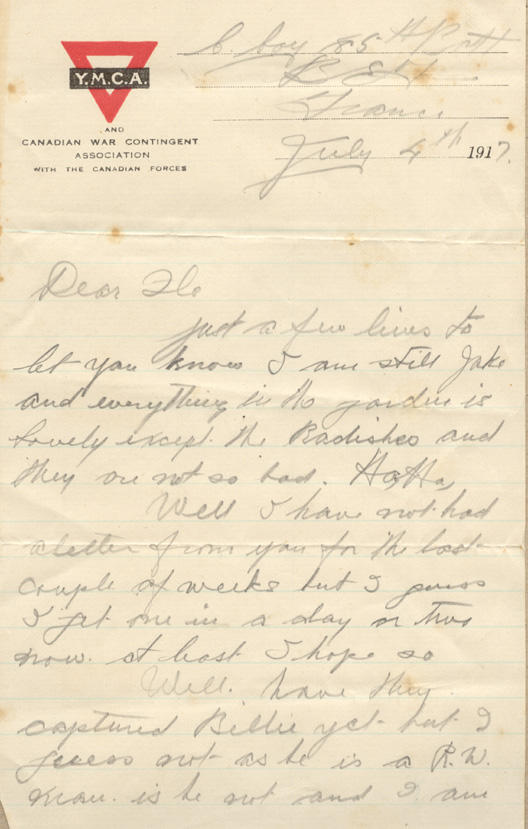 Y.M.C.A.
AND
CANADIAN WAR CONTINGENT
ASSOCIATION
WITH THE CANADIAN FORCES
C. Coy 85th Batt
B.E.F.
France
July 4th 1917.
Dear Flo
Just a few lines to
let you know I am still Jake
and everything in the garden is
lovely except the Radishes and
they are not so bad. Ha, Ha,
Well I have not had
a letter from you for the last
couple of weeks but I guess
I get one in a day or two
now. at least I hope so
Well. have they
captured Billie yet but I
guess not as he is a R.W.
man. is he not and I am